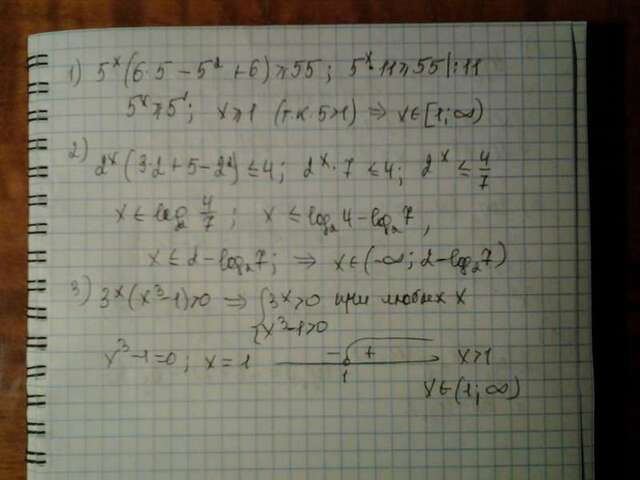 1) 5ˣ(6·5 − 5² + 6) ≥ 55; 5ˣ·11 ≥ 55 |:11
5ˣ ≥ 5¹; x ≥ 1 (т.к. 5>1) ⇒ x∈[1; ∞)
2) 2ˣ(3·2 + 5 − 2²) ≤ 4; 2ˣ·7 ≤ 4; 2ˣ ≤ 4/7
x ≤ log₂ 4/7; x ≤ log₂4 − log₂7,
x ≤ 2 − log₂7; ⇒ x∈(−∞; 2−log₂7)
3) 3ˣ(x³−1)>0 ⇒ { 3ˣ>0 при любых x
x³−1>0
x³−1=0; x=1 − + x>1
1
x∈(1; ∞)